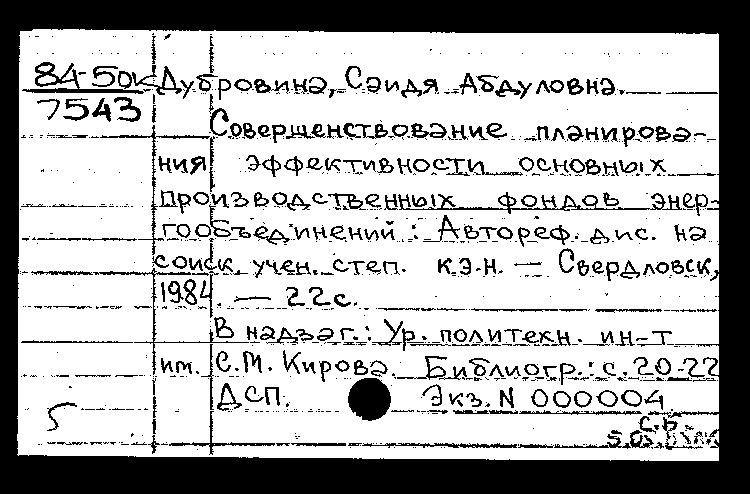 84-5ок Дубровина, Саидя Абдуловна.
7543
Совершенствование планирова-
ния эффективности основных
производственных фондов энер-
гообъединений : Автореф. дис. на
соиск. учен. степ. к.э.н. — Свердловск,
1984. — 22 с.
В надзаг.: Ур. политехн. ин-т
им. С.М. Кирова. Библиогр.: с. 20-22
ДСП. Экз. N 000004
5
С.Б.